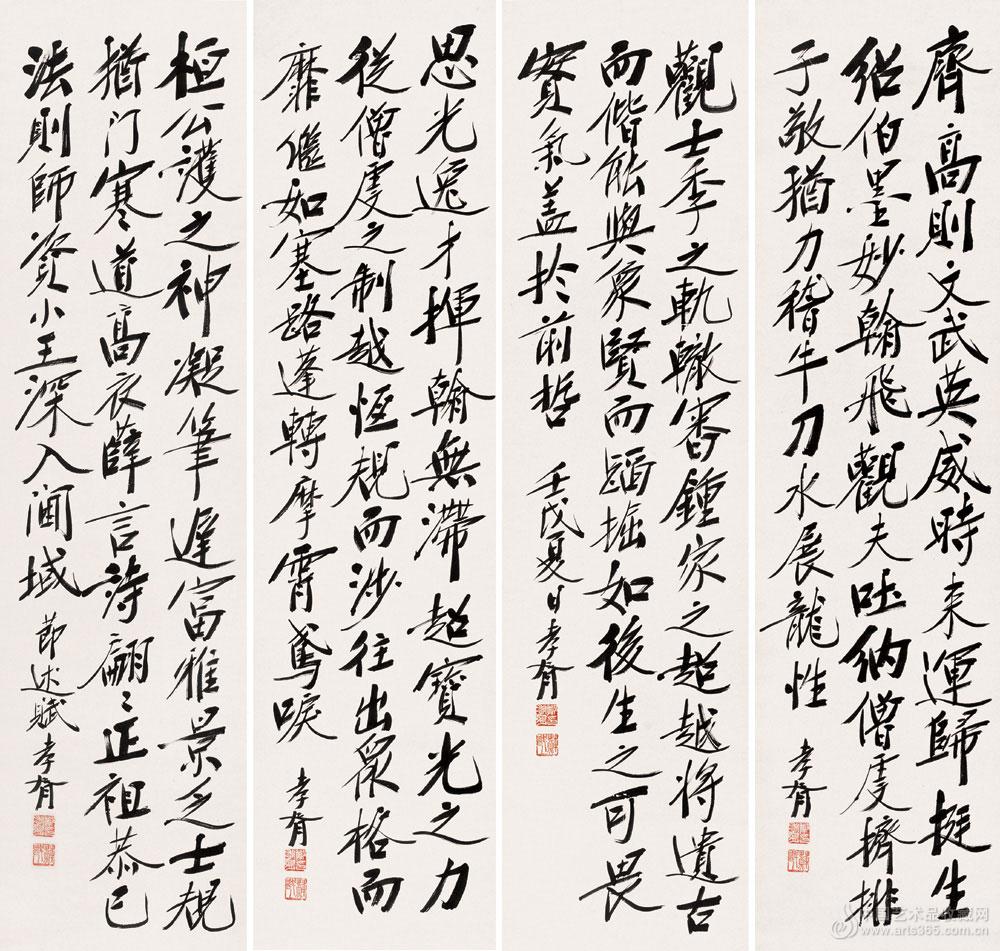 齊高則文武英威時来運歸挺生
紹伯墨妙翰飛觀夫吐納僧虔擠排
子敬猶力稽牛刀水展龍性 孝胥
觀士季之軌轍審鍾家之超越將遺古
而偕能與衆賢而掘如後生之可畏
實氣盖於前哲 壬戌夏日孝胥
思光逸才揮翰無滯超寶光之力
從僧虔之制越恆規而涉往出衆格而
靡繼如塞路蓬轉摩霄鳶唳 孝胥
桓公護之神凝筆遲富雅景乏士規
猶門寒道高衣薜言詩翩〻正祖恭已
法則師資小王深入閫域 節述賦孝胥
中国艺术品收藏网
www.arts365.com.cn